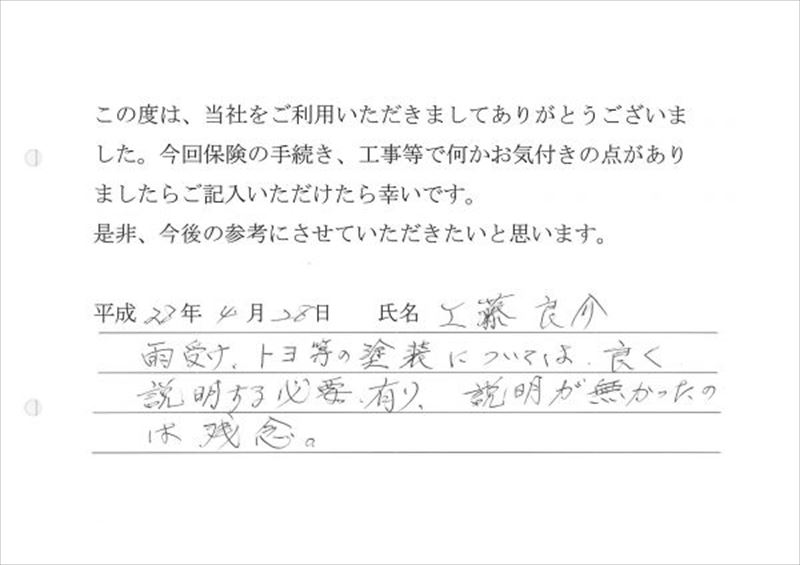 この度は、当社をご利用いただきましてありがとうございま
した。今回保険の手続き、工事等で何かお気付きの点があり
ましたらご記入いただけたら幸いです。
是非、今後の参考にさせていただきたいと思います。
平成 23年 4月 28日 氏名 工藤良介
雨受け、トヨ等の塗装については、良く
説明する必要有り、説明が無かったの
は残念。